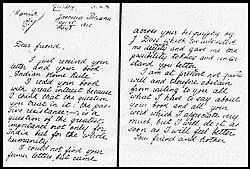 Dear friend.
I just received your letter and your book
Indian Home Rule.
I read your book
with great interest because
I think that the question
you treat in it: the pas-
sive resistance - is a
question of the greatest
importance not only for
India but for the whole
humanity.
I could not find your
former letters, but came
across your biography by
J. Doss which too interested
me deeply and gave me the
possibility to know and under-
stand you better.
I am at present not quite
well and therefore abstain
from writing to you all
what I have to say about
your book and all your
work which I appreciate very
much but I will do it as
soon as I will feel better.
Your friend and brother